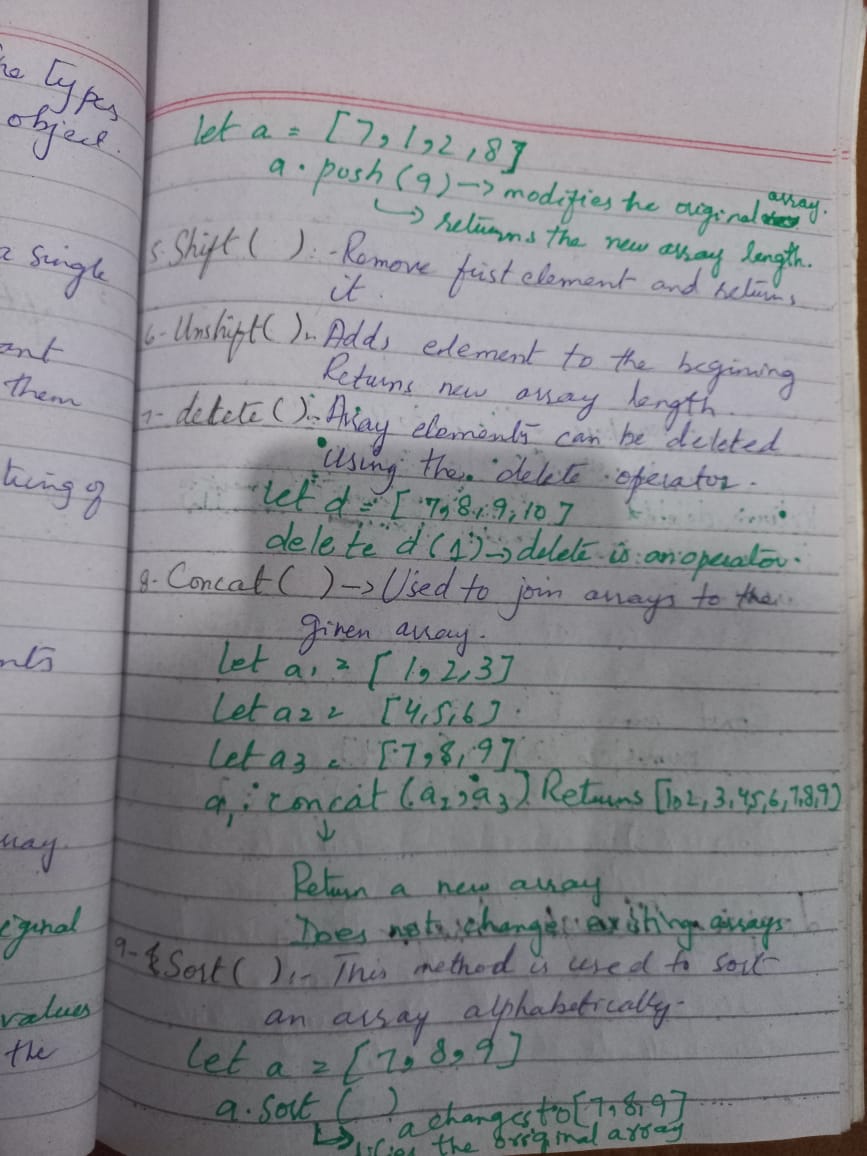 he types
object.
a single
ant
them
tring of
nts
rray.
iginal
values
the
let a = [7,1,2,8]
a.push(9) -> modifies he original array.
-> returns the new array length.
5. Shift( ):- Remove first element and returns
it.
6- Unshift():- Adds element to the begining
Returns new array length.
7- delete():- Array elements can be deleted
using the delete operator.
let d = [7,8,9,10]
delete d(1) -> delete is an operator.
8- Concat( ) -> Used to join arrays to the
given array.
let a1 = [1,2,3]
Let a2 = [4,5,6].
Let a3 = [7,8,9]
a1.concat(a2,a3) Returns [1,2,3,4,5,6,7,8,9)
↓
Return a new array
Does not change existing arrays
9- Sort( ):- This method is used to sort
an array alphabetically-
let a = [7,8,9]
a.sort ( )
a changes to [7,8,9]
the original array